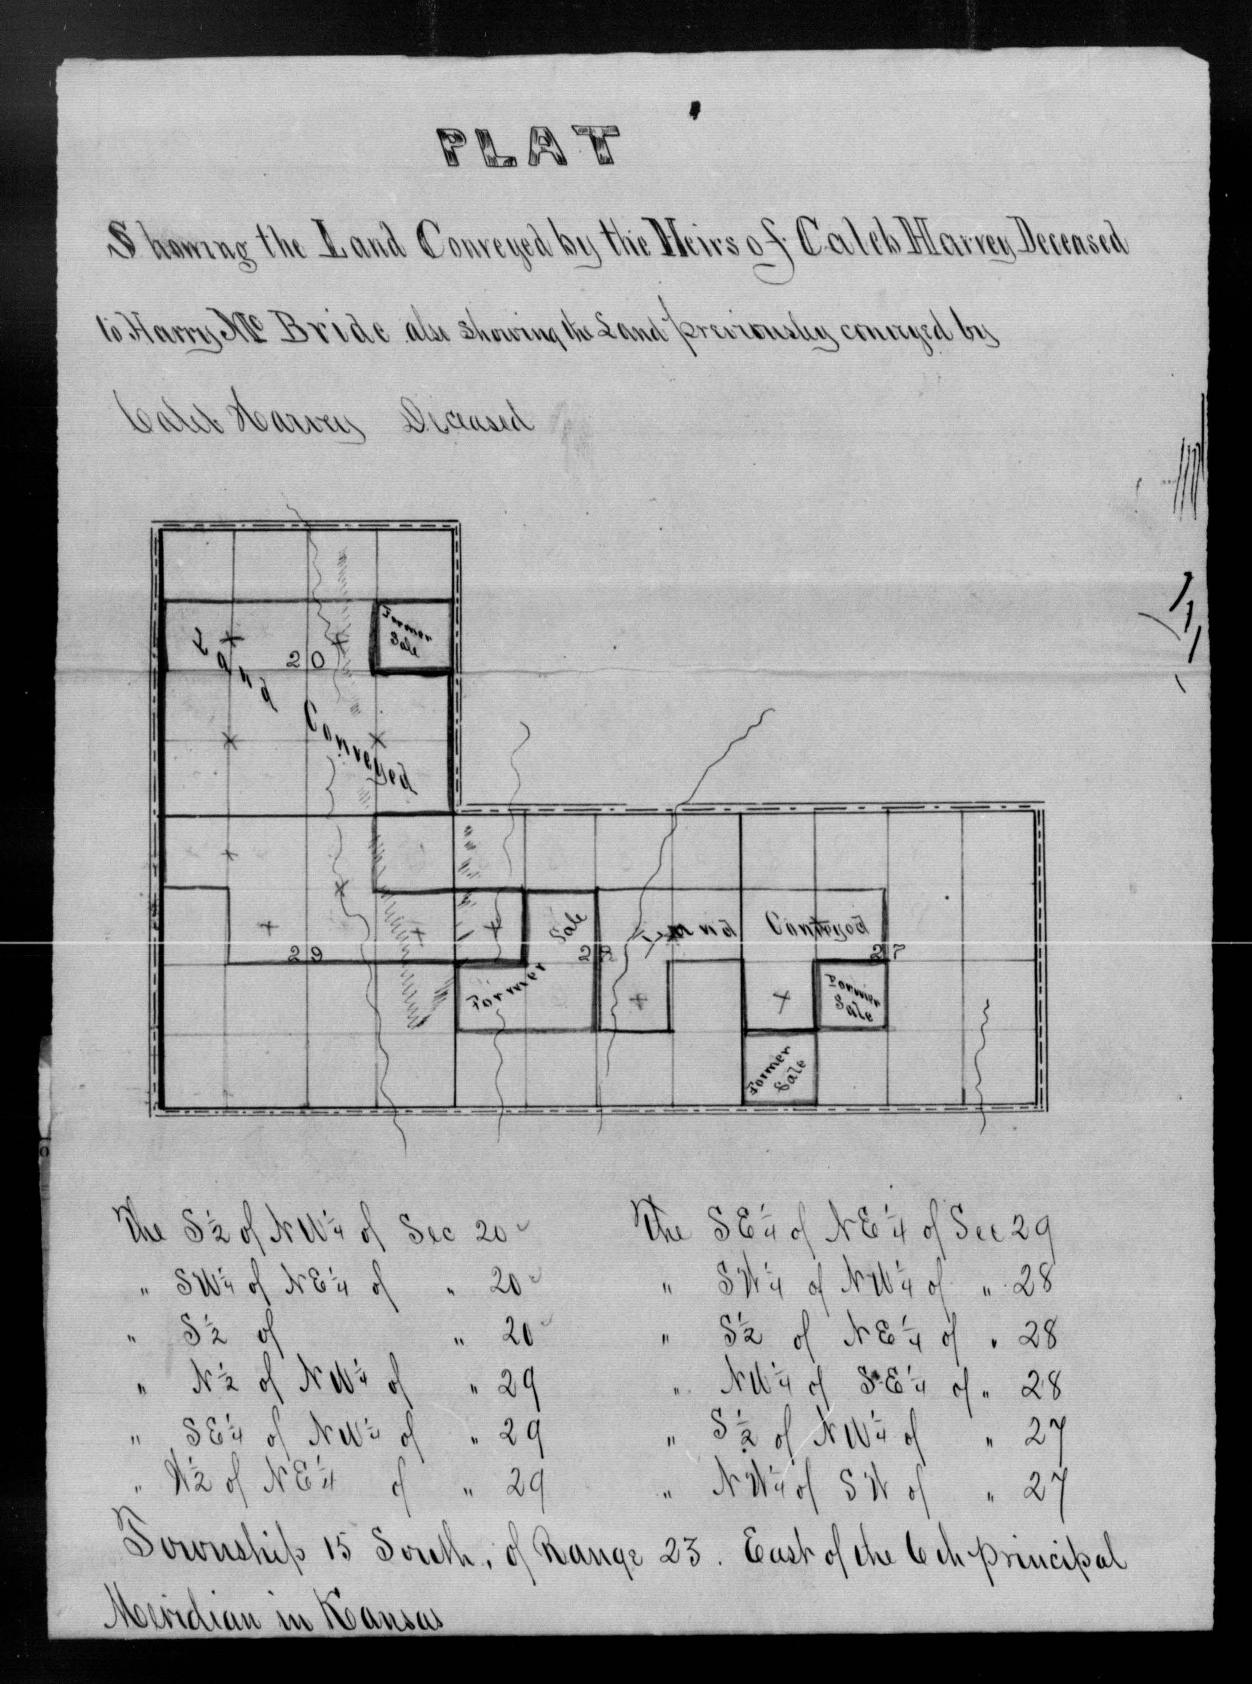 PLAT
Showing the Land Conveyed by the Heirs of Caleb Harvey Deceased
to Harry Mc Bride also showing the Land previously conveyed by
Caleb Harvey Deceased
Former
Sale
Land
20
Conveyed
Sale
Land Conveyed
29
28
27
Former
Former
Sale
Former
Sale
The S½ of NW¼ of Sec 20
" SW¼ of NE¼ of " 20
" S½ of " 20
" N½ of NW¼ of " 29
" SE¼ of NW¼ of " 29
" W½ of NE¼ of " 29
The SE¼ of NE¼ of Sec 29
" SW¼ of NW¼ of " 28
" S½ of NE¼ of " 28
" NW¼ of SE¼ of " 28
" S½ of NW¼ of " 27
" NW¼ of SW of " 27
Township 15 South, of Range 23. East of the 6th principal
Meridian in Kansas